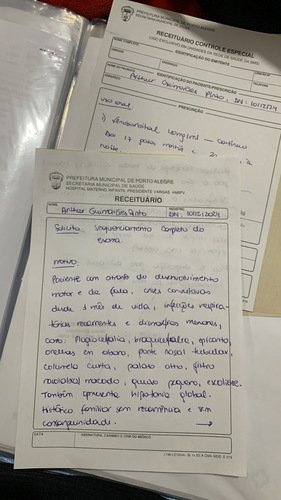 PREFEITURA MUNICIPAL DE PORTO ALEGRE
SECRETARIA MUNICIPAL DE SAÚDE
RECEITUÁRIO CONTROLE ESPECIAL
(USO EXCLUSIVO EM UNIDADES DA REDE DE SAÚDE DA SMS)
IDENTIFICAÇÃO DO EMITENTE
NOME COMPLETO
ENDEREÇO
IDENTIFICAÇÃO DO PACIENTE/PRESCRIÇÃO
Arthur Guimarães Pinto, DN: 10/12/24
PRESCRIÇÃO
uso oral
1)
noite
PREFEITURA MUNICIPAL DE PORTO ALEGRE
SECRETARIA MUNICIPAL DE SAÚDE
HOSPITAL MATERNO INFANTIL PRESIDENTE VARGAS - HMIPV
RECEITUÁRIO
NOME
Arthur Guimarães Pinto
REGISTRO
DN: 10/12/2024
Solicito: Sequenciamento completo do
exoma.
motivo:
Paciente com atraso do desenvolvimento
motor e da fala, crises convulsivas
desde 1 mês de vida, infecções respira-
tórias recorrentes e dismorfias menores,
como: Plagiocefalia, braquicefalia, epicanto,
orelhas em abano, ponte nasal tubular,
columela curta, palato alto, filtro
nasolabial marcado, queixo pequeno,
Também apresenta hipotonia global.
Histórico familiar sem recorrência e sem
consanguinidade.
DATA
ASSINATURA, CARIMBO E CRM DO MÉDICO